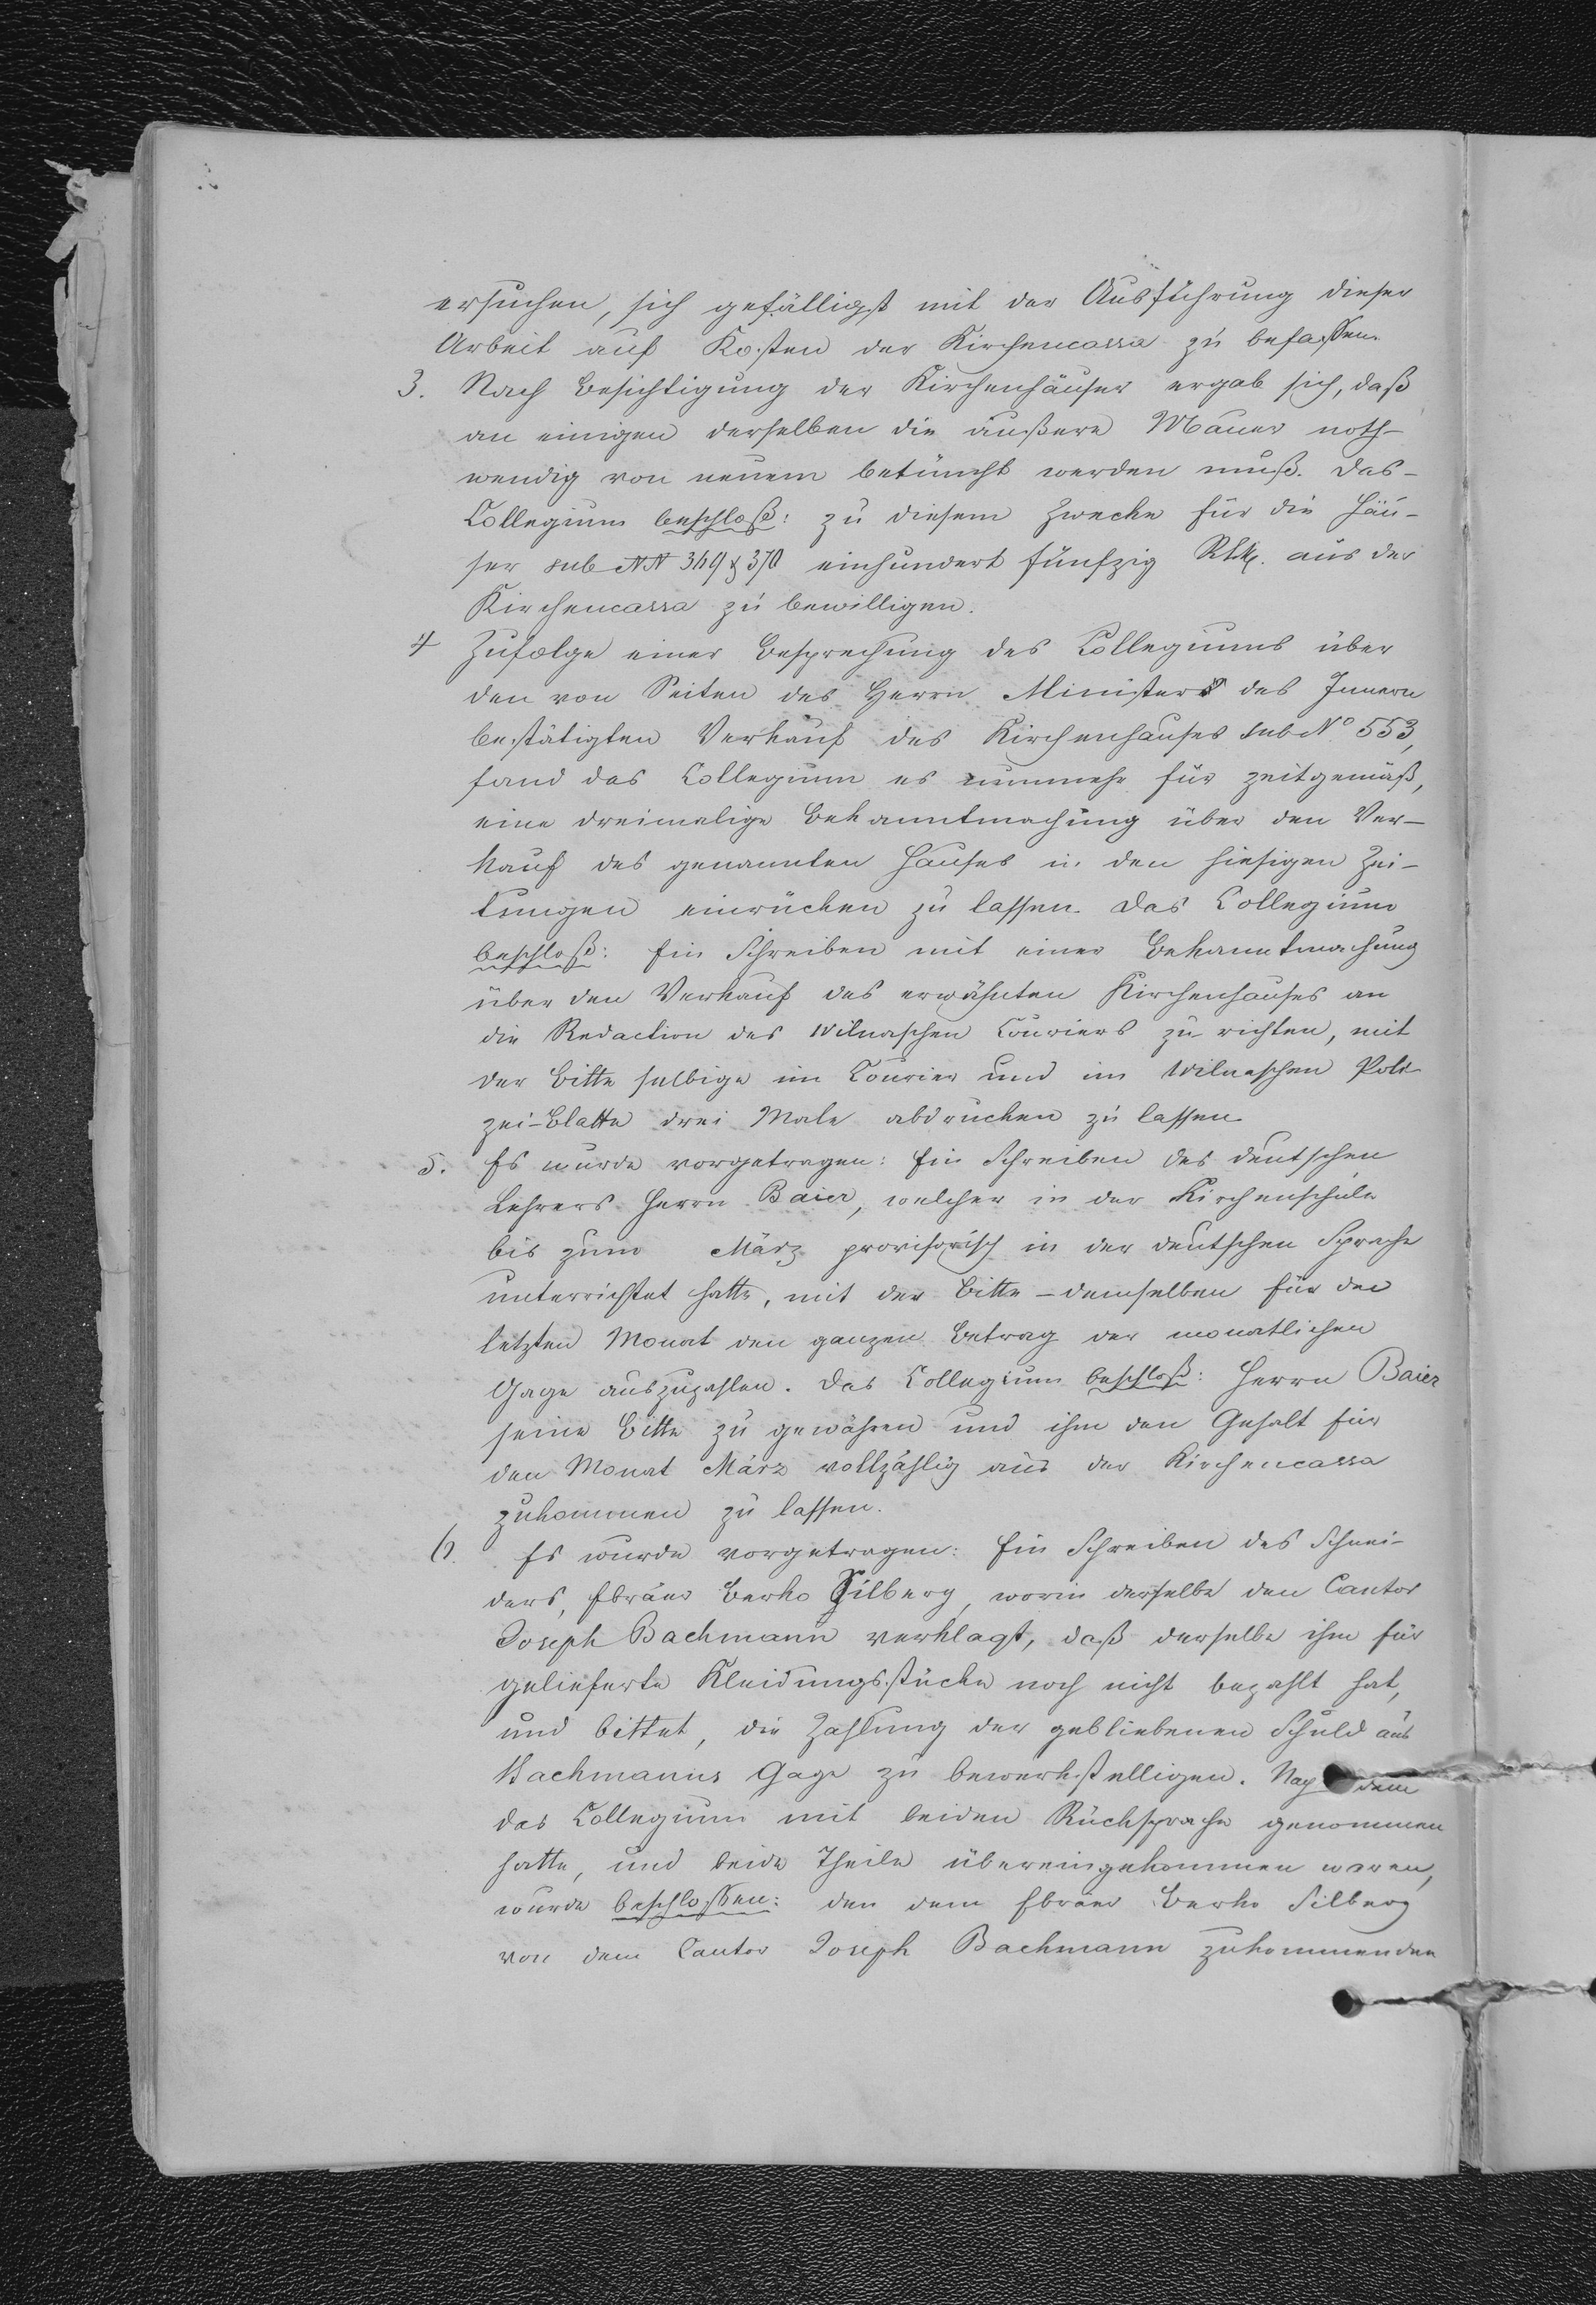 ersuchen, sich gefälligst mit der Ausführung dieser
Arbeit auf Kosten der Kirchencassa zu befassen.
3. Nach Besichtigung der Kirchenhäuser ergab sich, daß
an einigen derselben die äußere Mauer noth-
wendig von neuem betüncht werden muß. Das
Collegium beschloß: zu diesem Zwecke für die Häu-
ser sub NN 369 & 370 einhundert fünfzig Rbl. aus der
Kirchencassa zu bewilligen.
4 Zufolge einer Besprechung des Collegiums über
den von Seiten des Herrn Ministers des Innern
bestätigten Verkauf des Kirchenhauses sub No 553,
fand das Collegium es nunmehr für zeitgemäß,
eine dreimalige Bekanntmachung über den Ver-
kauf des genannten Hauses in den hiesigen Zei-
tungen einrücken zu lassen. Das Collegium
beschloß: Ein Schreiben mit einer Bekanntmachung
über den Verkauf des erwähnten Kirchenhauses an
die Redaction des Wilnaschen Couriers zu richten, mit
der Bitte selbige im Courier und im Wilnaschen Poli-
zei-Blatte drei Male abdrucken zu lassen.
5. Es wurde vorgetragen: Ein Schreiben des deutschen
Lehrers Herrn Baier, welcher in der Kirchenschule
bis zum März provisorisch in der deutschen Sprache
unterrichtet hatte, mit der Bitte - demselben für den
letzten Monat den ganzen Betrag der monatlichen
Gage auszuzahlen. Das Collegium beschloß: Herrn Baier
seine Bitte zu gewähren und ihm den Gehalt für
den Monat März vollzählig aus der Kirchencassa
zukommen zu lassen.
6. Es wurde vorgetragen: Ein Schreiben des Schnei-
ders, Ebräer Berko Silberg, worin derselbe den Cantor
Joseph Bachmann verklagt, daß derselbe ihm für
gelieferte Kleidungsstücke noch nicht bezahlt hat,
und bittet, die Zahlung der gebliebenen Schuld aus
Bachmanns Gage zu bewerkstelligen. Nachdem
das Collegium mit beiden Rücksprache genommen
hatte, und beide Theile übereingekommen waren,
wurde beschlossen: den dem Ebräer Berko Silberg
von dem Cantor Joseph Bachmann zukommenden